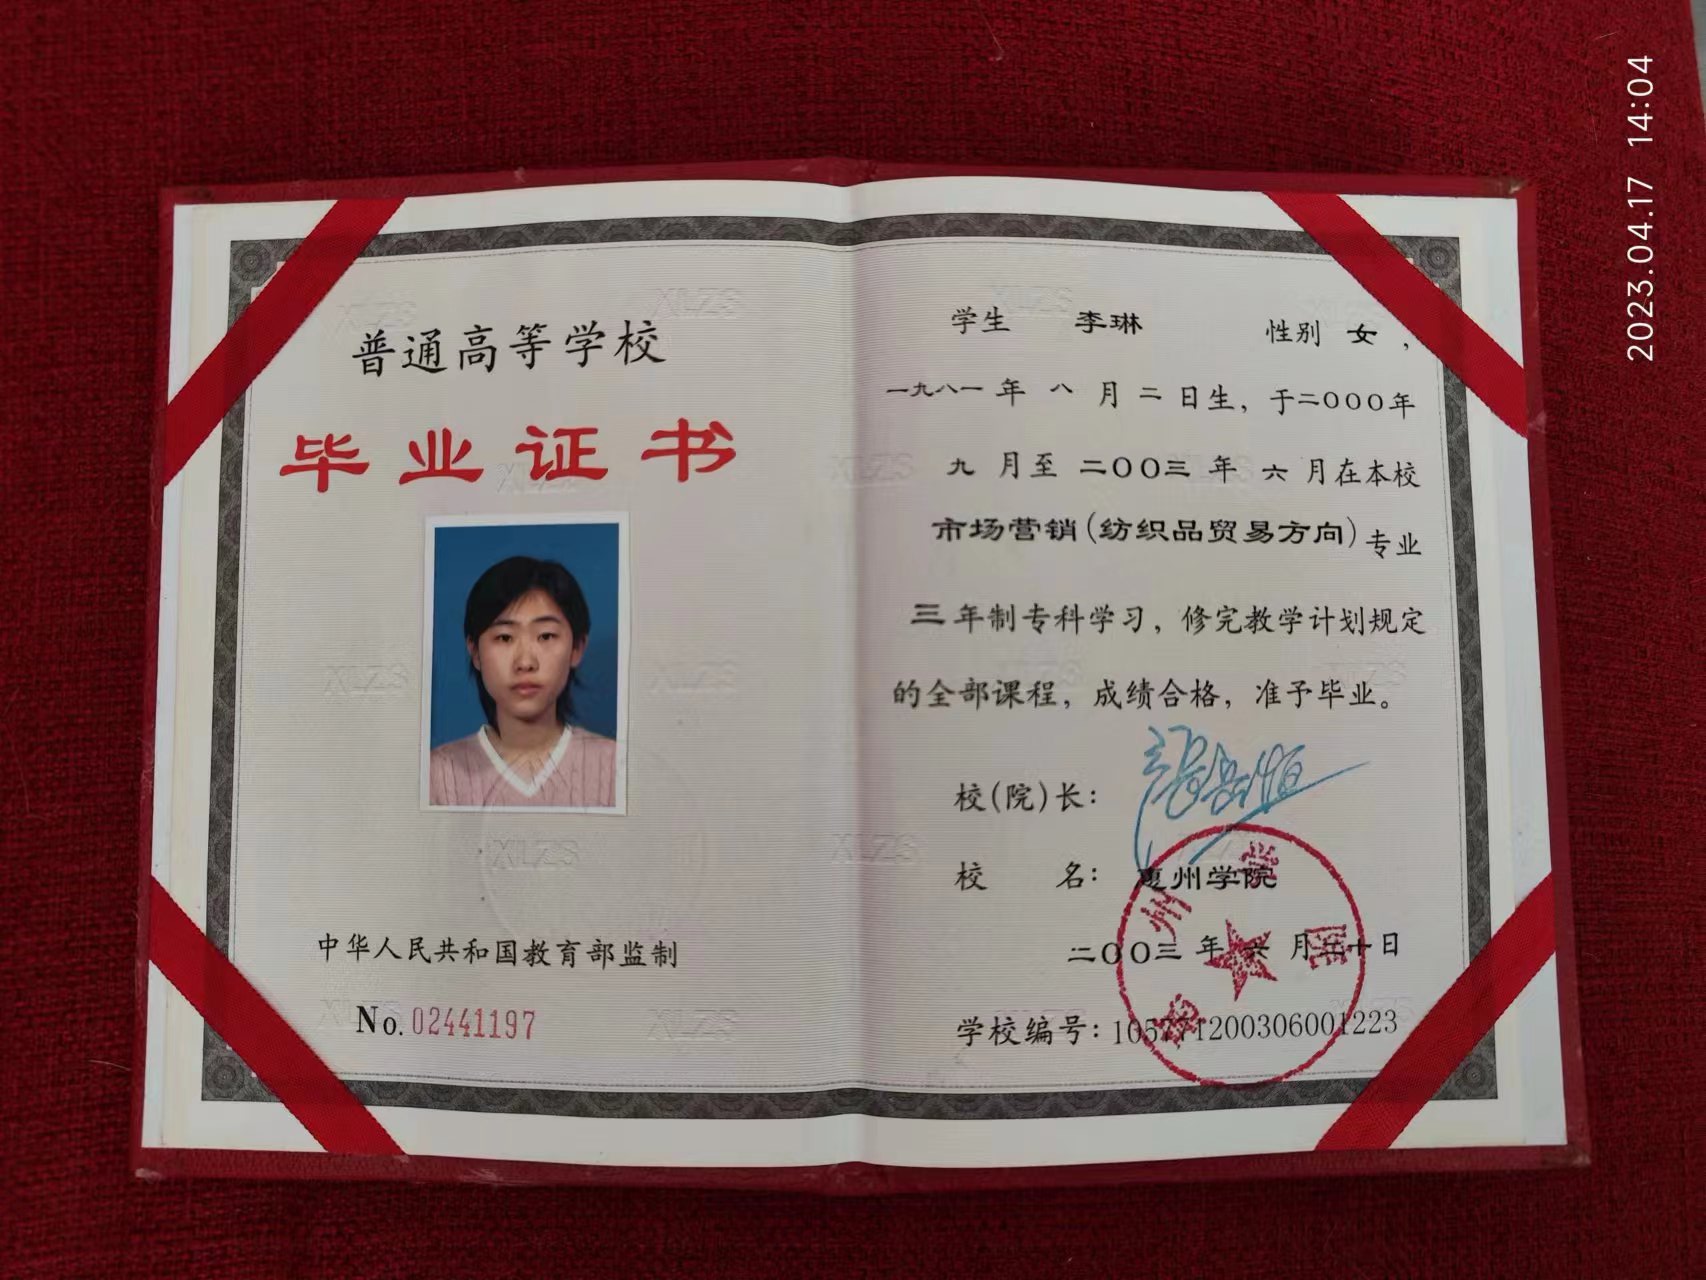 普通高等学校
毕业证书
中华人民共和国教育部监制
No. 02441197
学生 李琳 性别 女，
一九八一年 八 月 二 日生，于二〇〇〇年
九 月至 二〇〇三 年 六 月在本校
市场营销(纺织品贸易方向)专业
三年制专科学习，修完教学计划规定
的全部课程，成绩合格，准予毕业。
校(院)长：
校 名：惠州学院
二〇〇三 年 六 月三十日
学校编号：105771200306001223
2023.04.17 14:04
XLZS